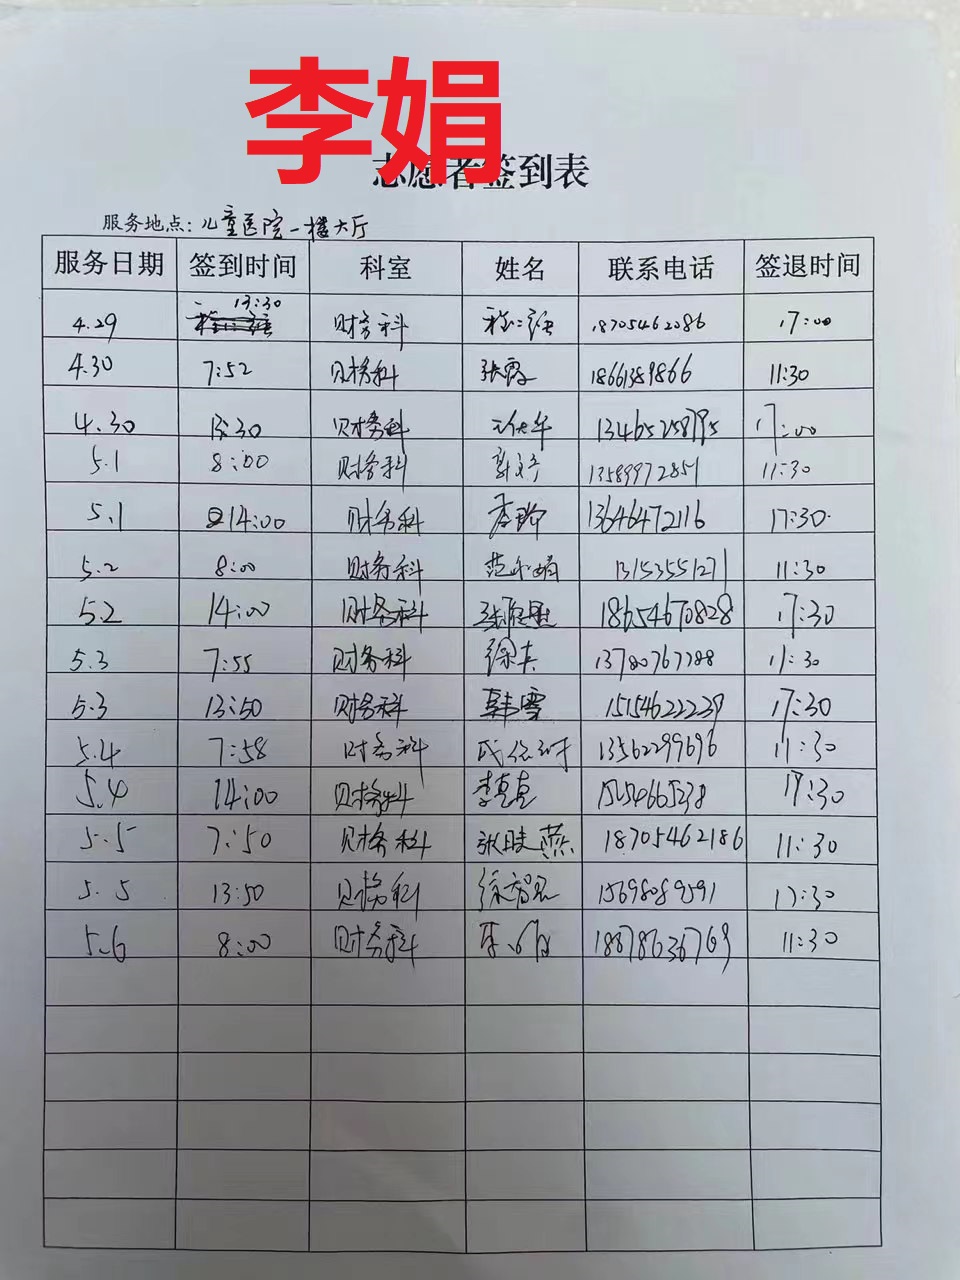 李娟
志愿者签到表
服务地点:儿童医院一楼大厅
服务日期 签到时间 科室 姓名 联系电话 签退时间
4.29 13:30 财务科 18705462086 17:00
4.30 7:52 财务科 张霞 18661359866 11:30
4.30 13:30 财务科 13465258795 17:00
5.1 8:00 财务科 13589972851 11:30
5.1 14:00 财务科 13646472116 17:30
5.2 8:00 财务科 13153551271 11:30
5.2 14:00 财务科 18654670828 17:30
5.3 7:55 财务科 13780767788 11:30
5.3 13:50 财务科 韩雪 15154622239 17:30
5.4 7:58 财务科 13562299696 11:30
5.4 14:00 财务科 李真真 15254665238 17:30
5.5 7:50 财务科 18705462186 11:30
5.5 13:50 财务科 15698089591 17:30
5.6 8:00 财务科 18878636769 11:30